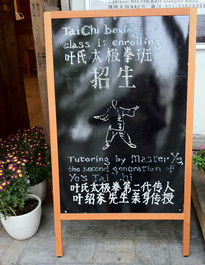 TaiChi boxing
class is enrolling
叶氏太极拳班
招生
Tutoring by Master Ye
the second generation
Ye's Tai chi
叶氏太极拳第二代传人
叶绍家先生亲身传授